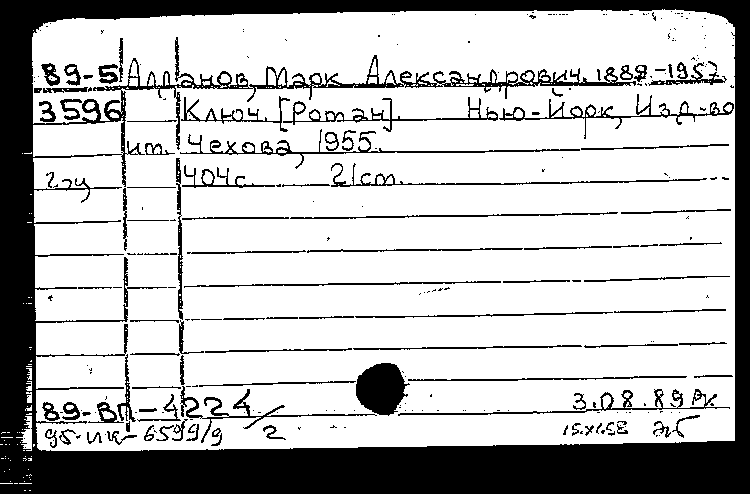 89-5 Алданов, Марк Александрович. 1889-1957.
3596 Ключ. [Роман]. Нью-Йорк, Изд-во
им. Чехова, 1955.
2эц 404с. 21см.
89-ВП-4224/2 3.08.89
95-ИК-6599/9 15.XI.58